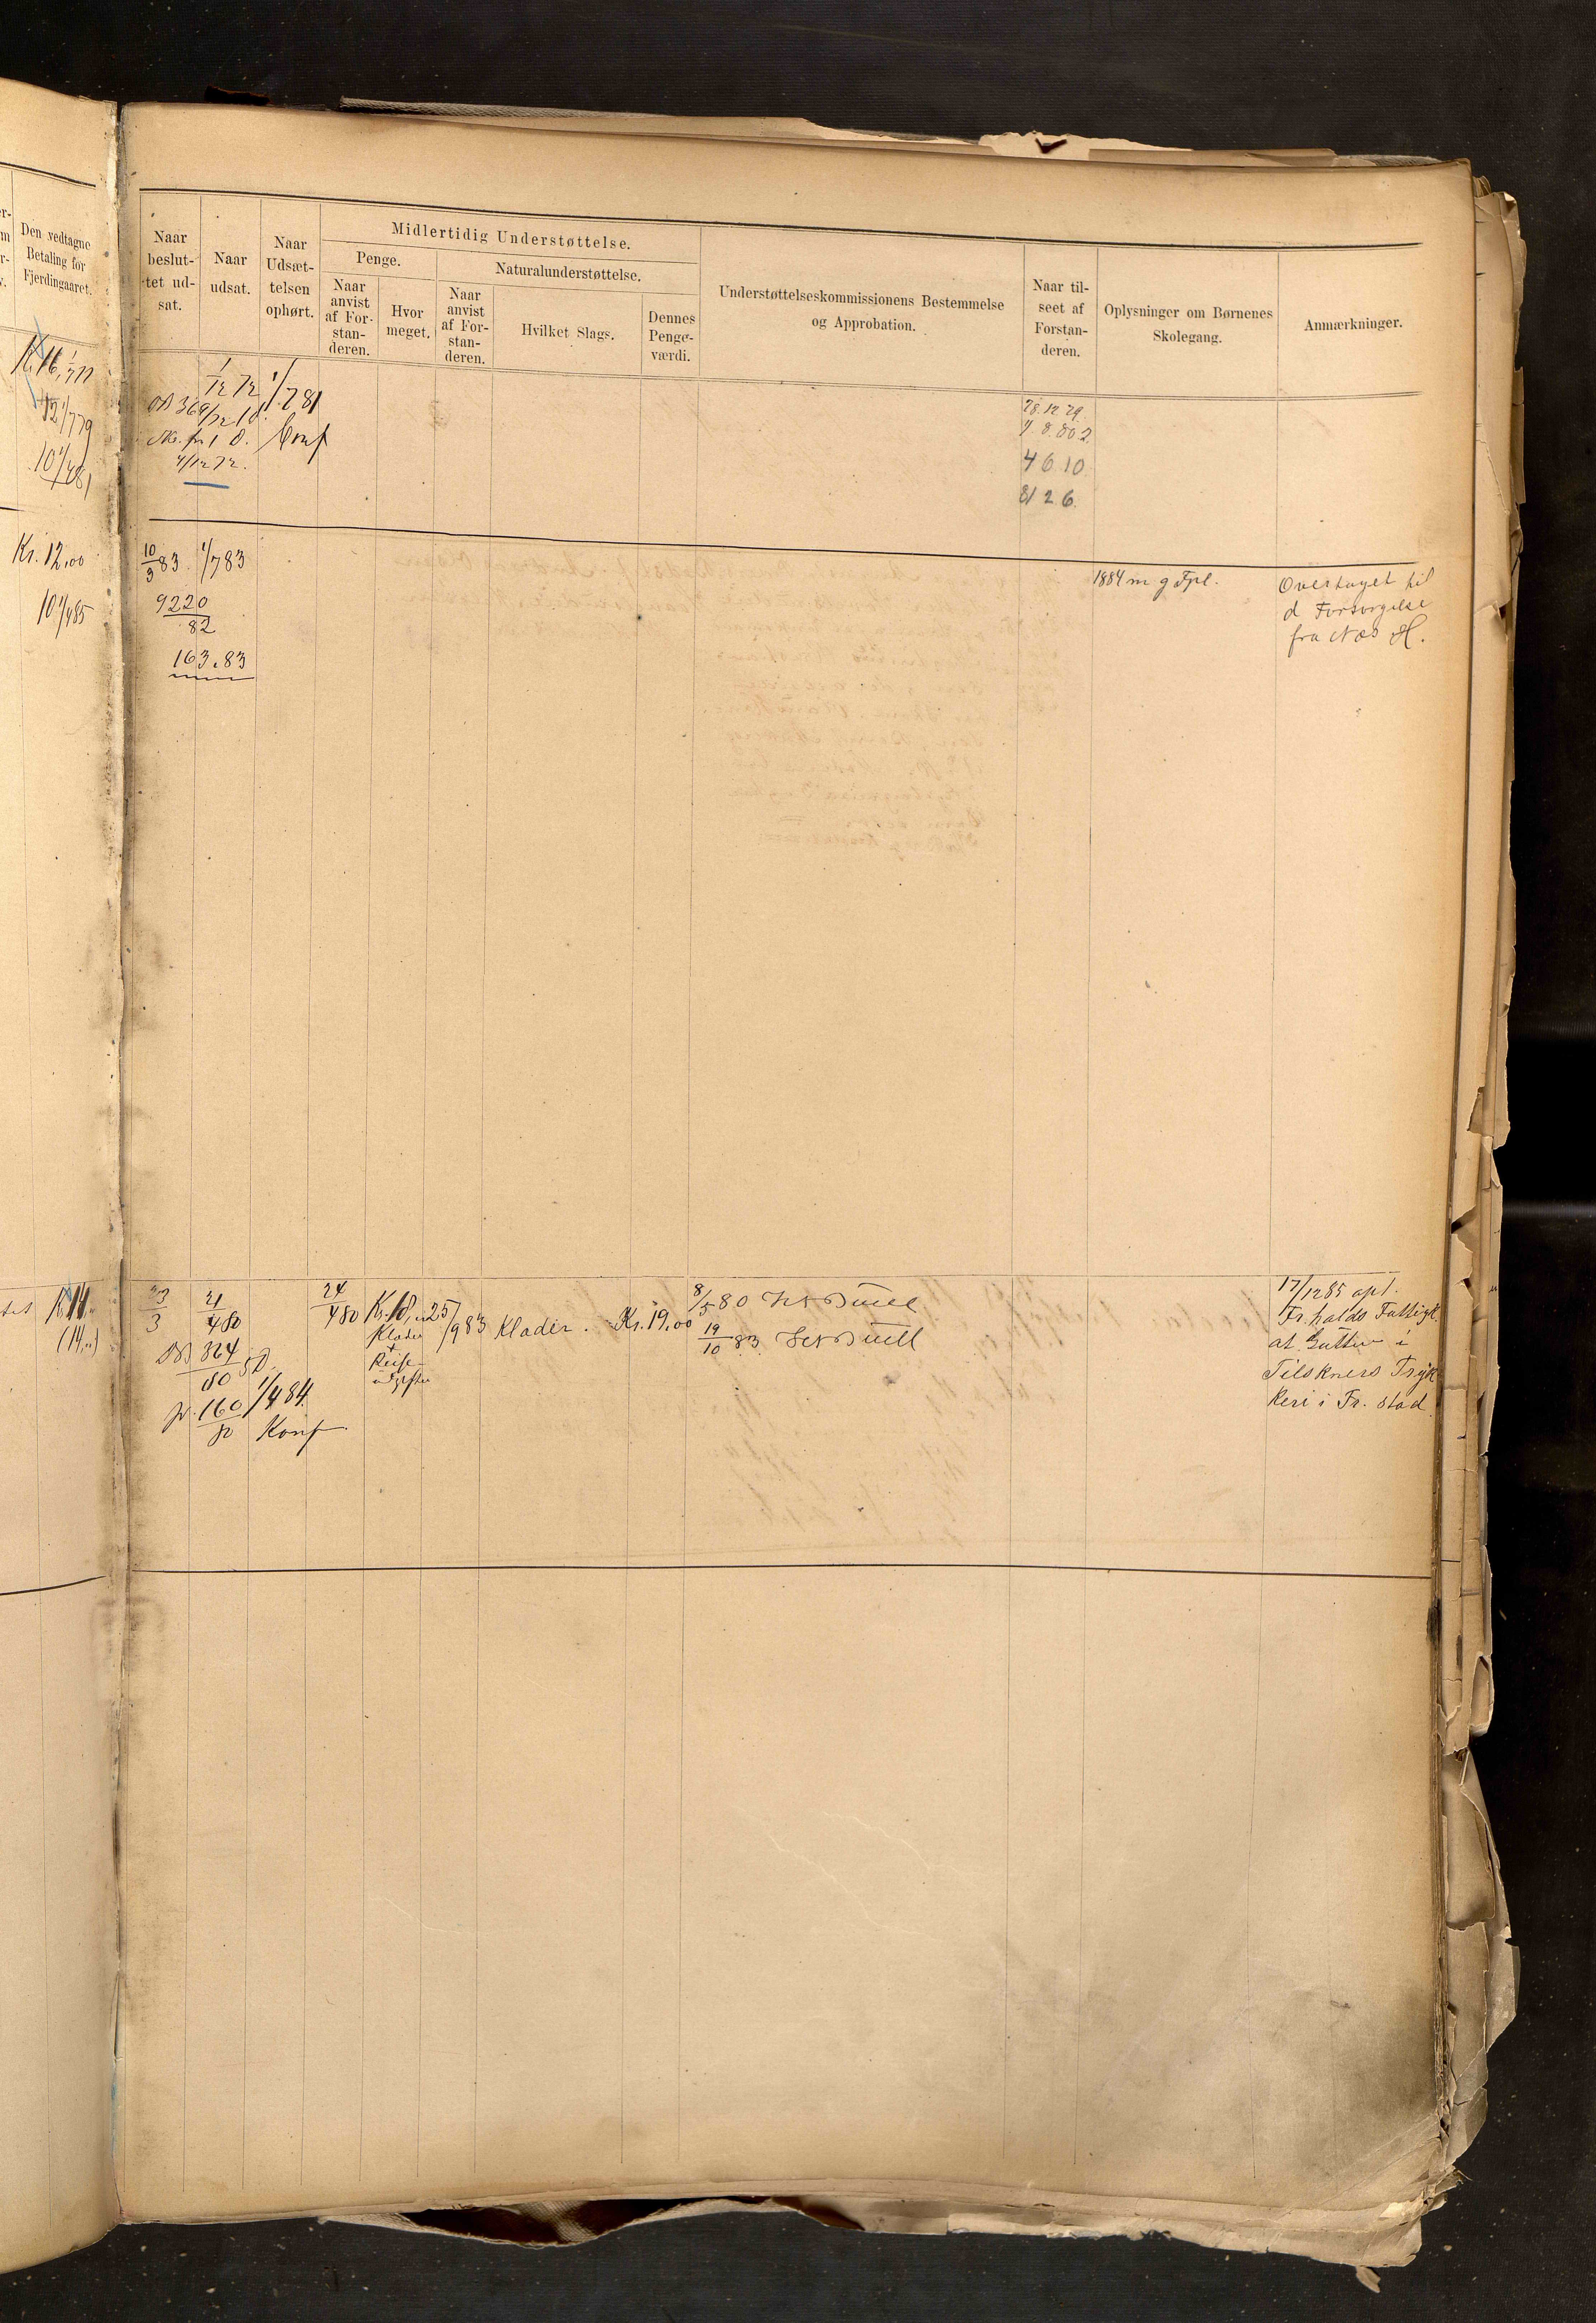 Den vedtagne
Betaling for
Fjerdingaaret.
Naar
beslut-
tet ud-
sat.
Naar
udsat.
Naar
Udsæt-
telsen
ophørt.
Midlertidig Understøttelse.
Penge.
Naar
anvist
af For-
stan-
deren.
Hvor
meget.
Naturalunderstøttelse.
Naar
anvist
af For-
stan-
deren.
Hvilket Slags.
Dennes
Penge-
værdi.
Understøttelseskommissionens Bestemmelse
og Approbation.
Naar til-
seet af
Forstan-
deren.
Oplysninger om Børnenes
Skolegang.
Anmærkninger.
12 1/7 79
10 1/4 81
1/12 72
4/12 72.
1/7 81
Conf
28.12.79
4 6 10
81 2 6
Kr. 12,00
10 1/4 85
10/3 83.
1/7 83
9220
82
163.83
1884 m g Fpl.
Overtaget til
d Forsørgelse
fra Næs H.
(14,,)
23
3
21
4 80
324
80
160
80
1/4 84.
Konf
24
4 80
Klæder
+
Reise-
udgifter
25/9 83
Klæder.
Kr. 19,00
8/5 80
19/10 83.
17/12 85 opl.
Fr.halds Fattigk.
at Gutten i
Tilskners Tryk
keri i Fr. stad